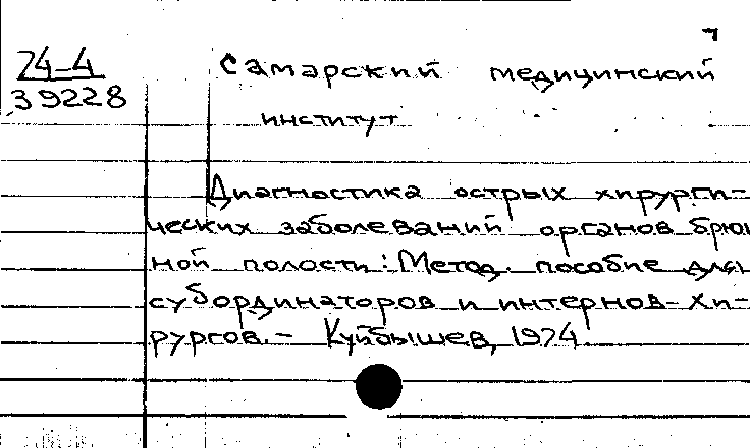 7
74-4
39228
Самарский медицинский
институт
Диагностика острых хирурги-
ческих заболеваний органов брюш
ной полости: Метод. пособие для
субординаторов и интернов-хи-
рургов. - Куйбышев, 1974.